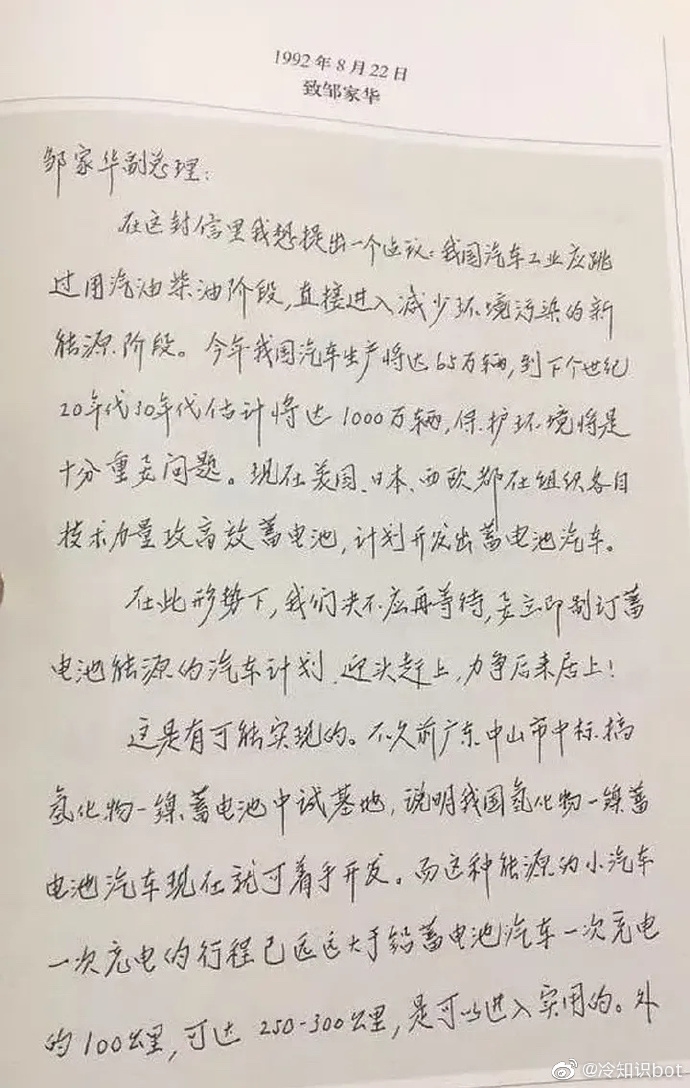 1992年8月22日
致邹家华
邹家华副总理：
在这封信里我想提出一个建议：我国汽车工业应跳
过用汽油柴油阶段，直接进入减少环境污染的新
能源阶段。今年我国汽车生产将达65万辆，到下个世纪
20年代30年代估计将达1000万辆，保护环境将是
十分重要问题。现在美国、日本、西欧都在组织各自
技术力量攻高效蓄电池，计划开发出蓄电池汽车。
在此形势下，我们决不应再等待，要立即制订蓄
电池能源的汽车计划，迎头赶上，力争后来居上！
这是有可能实现的。不久前广东中山市中标搞
氢化物—镍蓄电池中试基地，说明我国氢化物—镍蓄
电池汽车现在就可着手开发。而这种能源的小汽车
一次充电的行程已远远大于铅蓄电池汽车一次充电
的100公里，可达250-300公里，是可以进入实用的。外
@冷知识bot